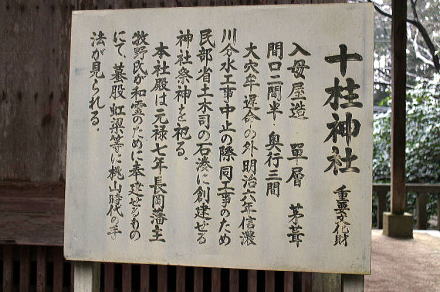 十柱神社 重要文化財
入母屋造 単層 茅葺
間口二間半・奥行三間
大穴牟遅命の外明治六年信濃
川分水工事中止の際同工事のため
民部省土木司の石湊に創建せる
神社祭神を祀る。
本社殿は元禄七年長岡藩主
牧野氏が和霊のために奉建せるもの
にて、蟇股、虹梁等に桃山時代の手
法が見られる。